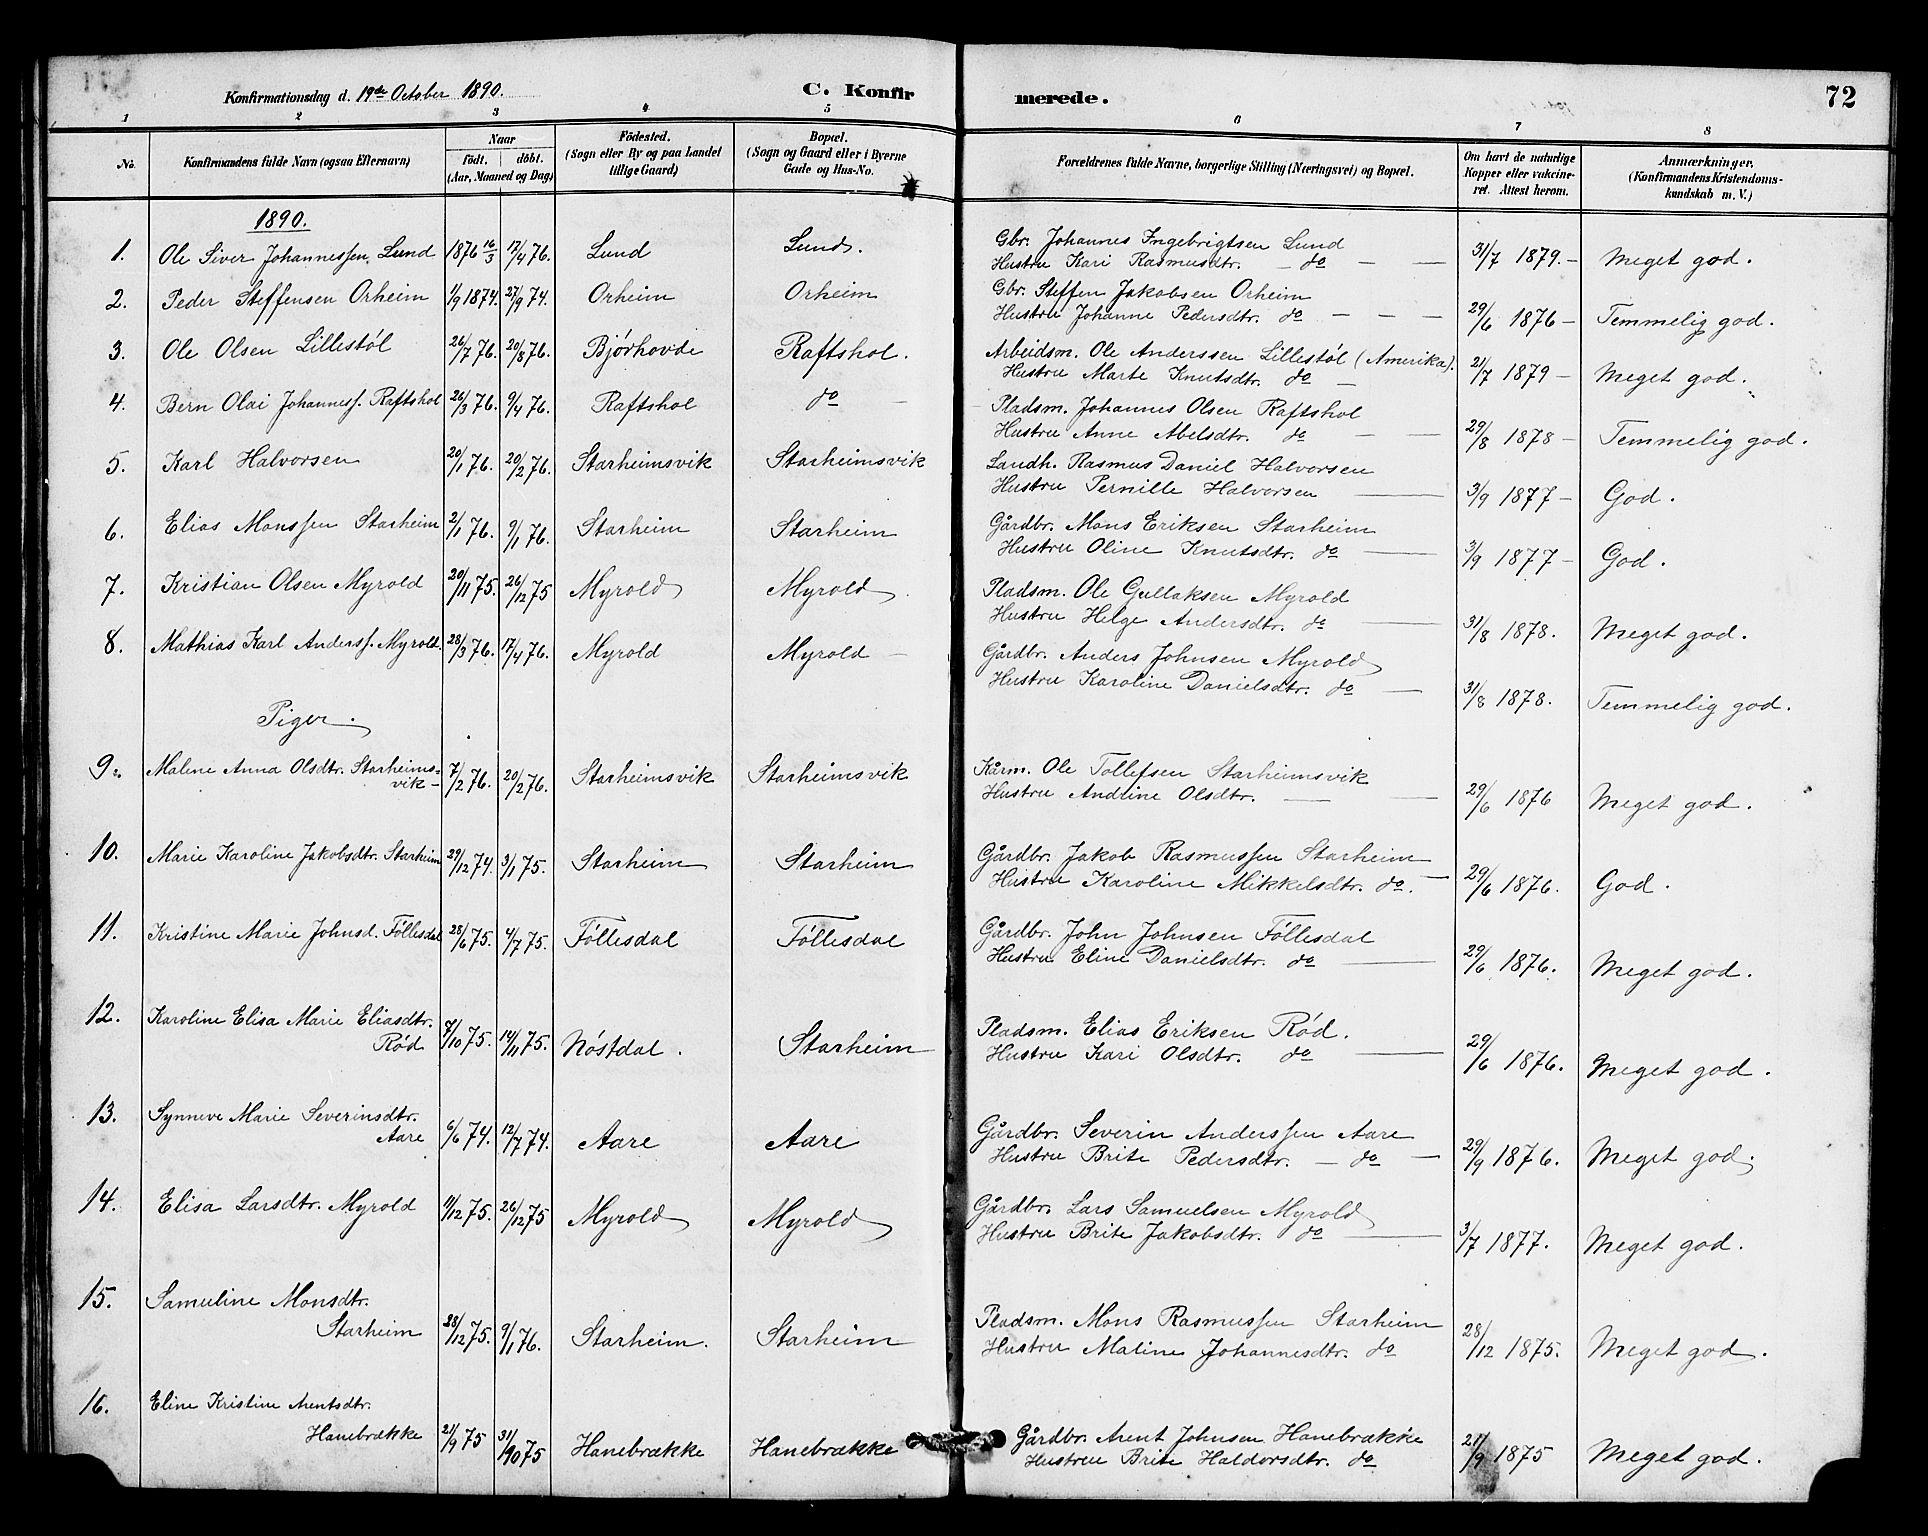 Konfirmationsdag d. 19de October 1890. C. Konfirmerede. 72
1 2 3 4 5 6 7 8
No. Konfirmandens fulde Navn (ogsaa Efternavn) Naar födt. döbt. (Aar, Maaned og Dag) Födested. (Sogn eller By og paa Landet tillige Gaard) Bopæl. (Sogn og Gaard eller i Byerne Gade og Hus-No. Forældrenes fulde Navne, borgerlige Stilling (Næringsvei) og Bopæl. Om havt de naturlige Kopper eller vakcineret. Attest herom. Anmærkninger. (Konfirmandens Kristendomskundskab m. V.)
1890.
1. Ole Siver Johannessen Lund 1876 16/3 17/4 76. Lund Lund. Gbr. Johannes Ingebrigtsen Lund 31/7 1879. – Meget god.
Hustru Kari Rasmusdtr. – do – —
2. Peder Steffensen Orheim 1/9 1874. 27/9 74. Orheim Orheim Gbr. Steffen Jakobsen Orheim 29/6 1876 – Temmelig god.
Hustru Johanne Pedersdtr. do — – —
3. Ole Olsen Lillestöl 26/7 76. 20/8 76. Bjórhovde Raftshol. Arbeidsm. Ole Anderssen Lillestól (Amerika). 21/7 1879 – Meget god.
Hustru Marte Knutsdtr. do –
4. Bern Olai Johanness. Raftshol 26/3 76. 9/4 76. Raftshol do — Pladsm. Johannes Olsen Raftshol 29/8 1878 – Temmelig god.
Hustru Anne Abelsdtr. do — —
5. Karl Halvorsen 20/1 76. 20/2 76. Starheimsvik Starheimsvik Landh. Rasmus Daniel Halvorsen 3/9 1877 – God.
Hustru Pernille Halvorsen —
6. Elias Monssen Starheim 2/1 76. 9/1 76. Starheim Starheim Gårdbr. Mons Eriksen Starheim 3/9 1877 – God.
Hustru Oline Knutsdtr. do —
7. Kristian Olsen Myrold 20/11 75. 26/12 75 Myrold Myrold Pladsm. Ole Gullaksen Myrold 31/8 1878. Meget god.
Hustru Helge Andersdtr. do —
8. Mathias Karl Anderss. Myrold. 28/3 76. 17/4 76. Myrold Myrold – Gårdbr. Anders Johnsen Myrold 31/8 1878. Temmelig god.
Hustru Karoline Danielsdtr. do —
Piger.
9. Malene Anna Olsdtr. Starheims= 7/2 76. 20/2 76. Starheimsvik Starheimsvik Kårm. Ole Tollefsen Starheimsvik 29/6 1876 Meget god.
vik – Hustru Andrine Olsdtr. — —
10. Marie Karoline Jakobsdtr. Starheim 29/12 74. 3/1 75. Starheim Starheim Gårdbr. Jakob Rasmussen Starheim 29/6 1876. God.
Hustru Karoline Mikkelsdtr. do. —
11. Kristine Marie Johnsd. Föllesdal 28/6 75. 4/7 75. Föllesdal Föllesdal Gårdbr. John Johnsen Föllesdal 29/6 1876. Meget god.
Hustru Eline Danielsdtr. do —
12. Karoline Elisa Marie Eliasdtr. 7/10 75. 14/11 75. Nóstdal. Starheim Pladsm. Elias Eriksen Ród. 29/6 1876. Meget god.
Ród Hustru Kari Olsdtr. do —
13. Synneve Marie Severinsdtr. 6/6 74. 12/7 74. Aare Aare Gårdbr. Severin Anderssen Aare 29/9 1876. Meget god.
Aare Hustru Brite Pedersdtr. – do –
14. Elisa Larsdtr. Myrold 11/12 75. 26/12 75 Myrold Myrold Gårdbr. Lars Samuelsen Myrold 3/7 1877. Meget god.
Hustru Brite Jakobsdtr. do —
15. Samuline Monsdtr. 28/12 75. 9/1 76. Starheim. Starheim Pladsm. Mons Rasmussen Starheim 28/12 1875. Meget god.
Starheim Hustru Maline Johannesdtr. do
16. Eline Kristine Arentsdtr. 21/9 75 31/10 75 Hanebrække Hanebrække Gårdbr. Arent Johnsen Hanebrække 21/9 1875 Meget god.
Hanebrække Hustru Brite Haldorsdtr. do